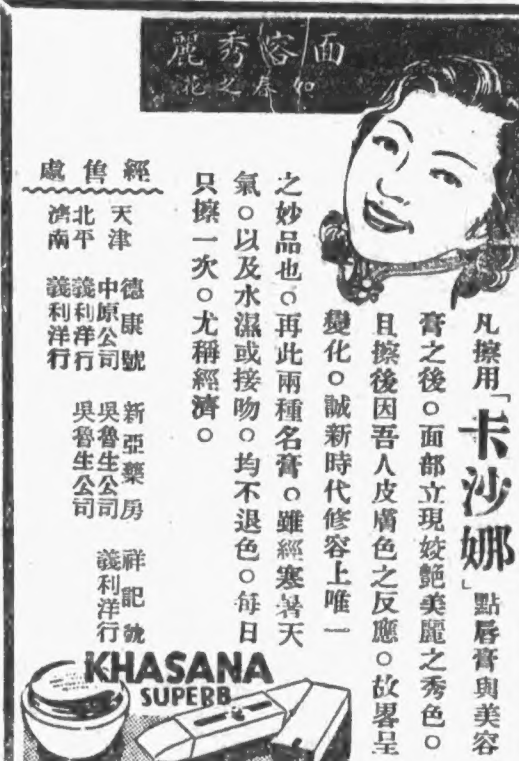 面容秀麗
如春之花
凡擦用「卡沙娜」點唇膏與美容
膏之後。面部立現姣艶美麗之秀色。
且擦後因吾人皮膚色之反應。故畧呈
變化。誠新時代修容上唯一
之妙品也。再此兩種名膏。雖經寒暑天
氣。以及水濕或接吻。均不退色。每日
只擦一次。尤稱經濟。
經售處
天津 德康號 新亞藥房 祥記號
中原公司 吳魯生公司 義利洋行
北平 義利洋行 吳魯生公司
濟南 義利洋行
KHASANA
SUPERB